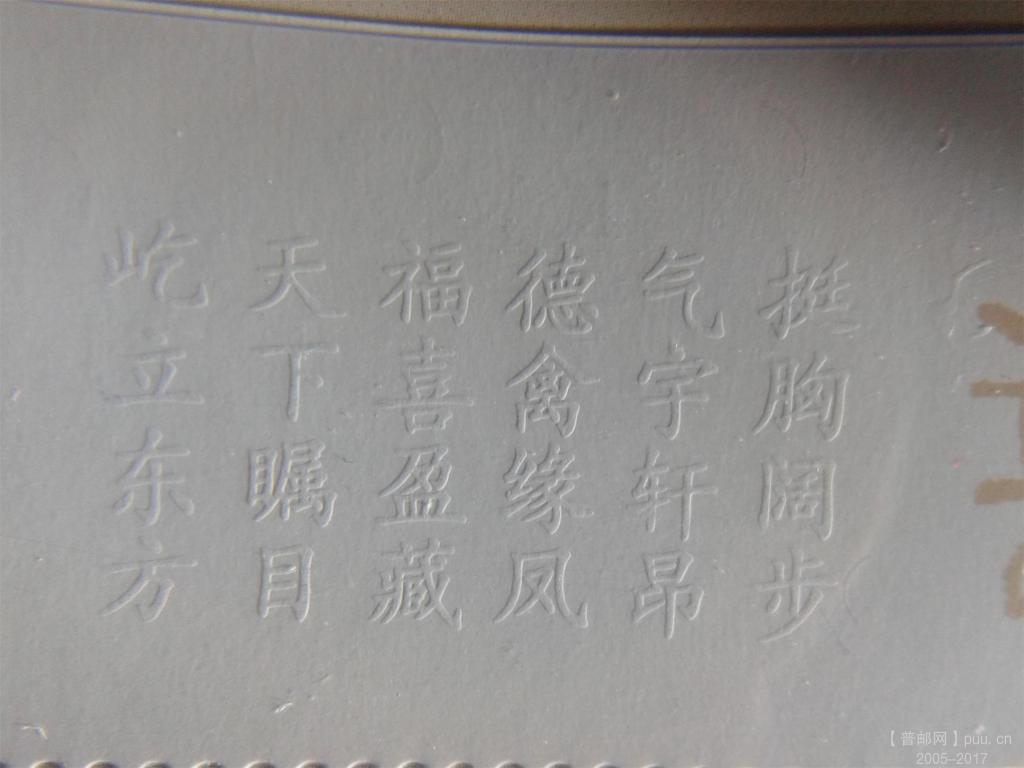 挺胸阔步
气宇轩昂
德禽缘凤
福喜盈藏
天下瞩目
屹立东方
【普邮网】puu.cn
2005--2017